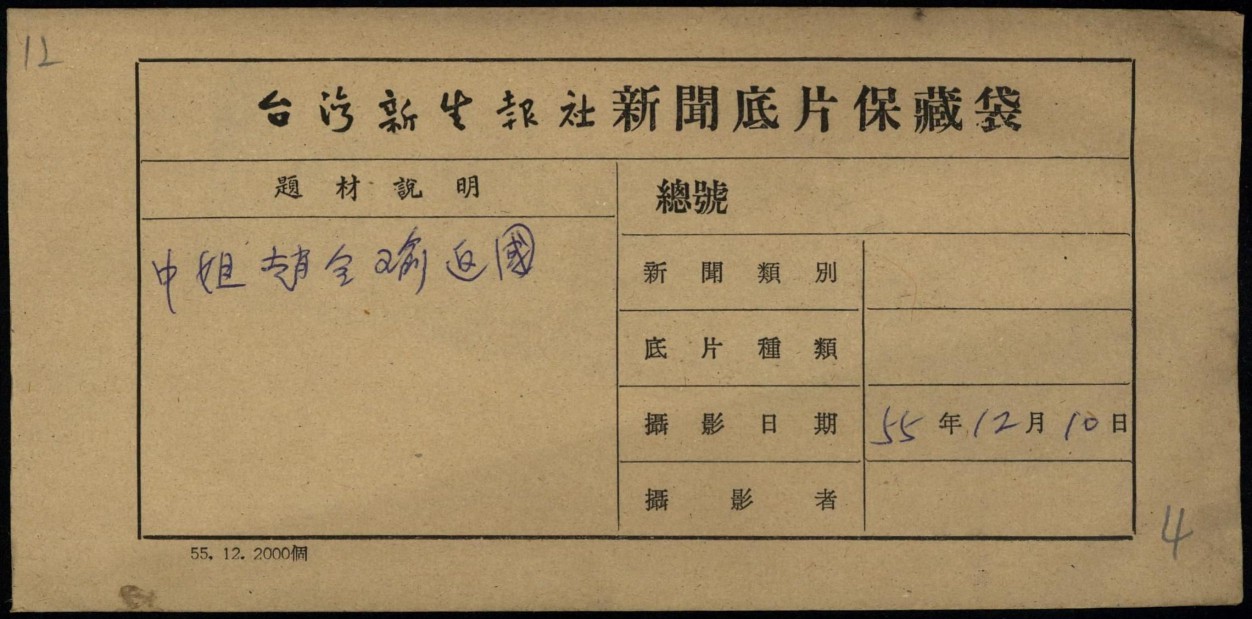 12
台湾新生報社新聞底片保藏袋
題材說明
中姐趙令瑜返國
總號
新聞類別
底片種類
攝影日期 55年12月10日
攝影者
55. 12. 2000個
4